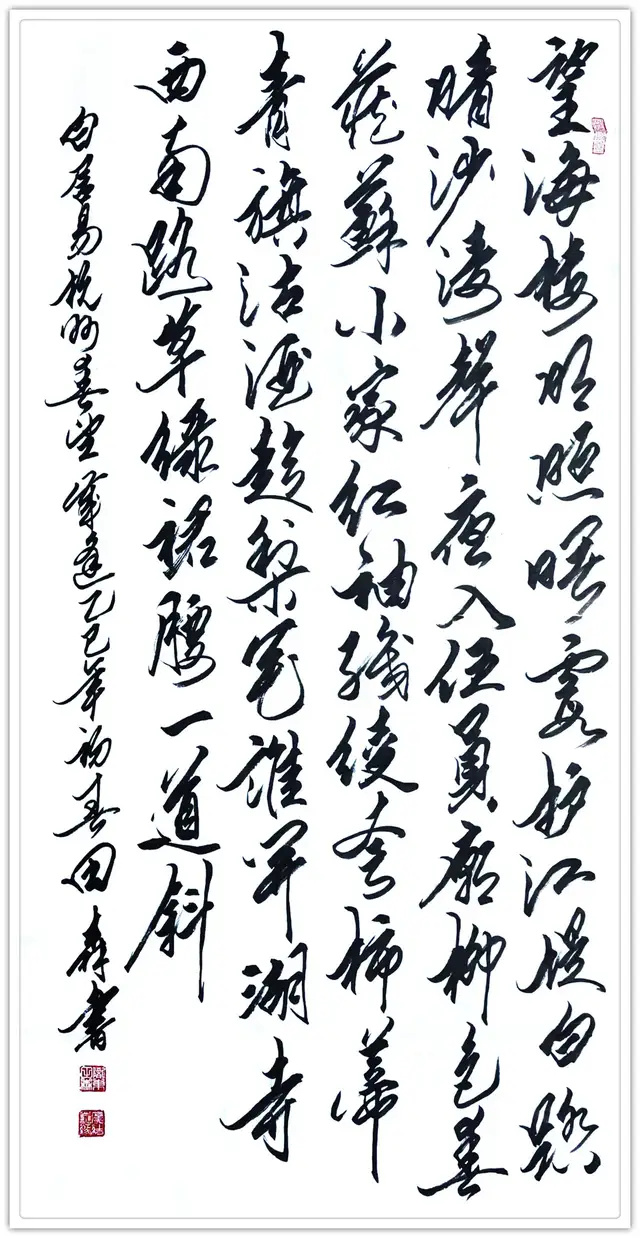 望海楼明照曙霞护江堤白踏
晴沙涛声夜入伍员廟柳色春
藏蘇小家红袖织绫夸柿蒂
青旗沽酒趁梨花谁开湖寺
西南路草绿裙腰一道斜
白居易杭州春望岁逢乙巳年初春田书